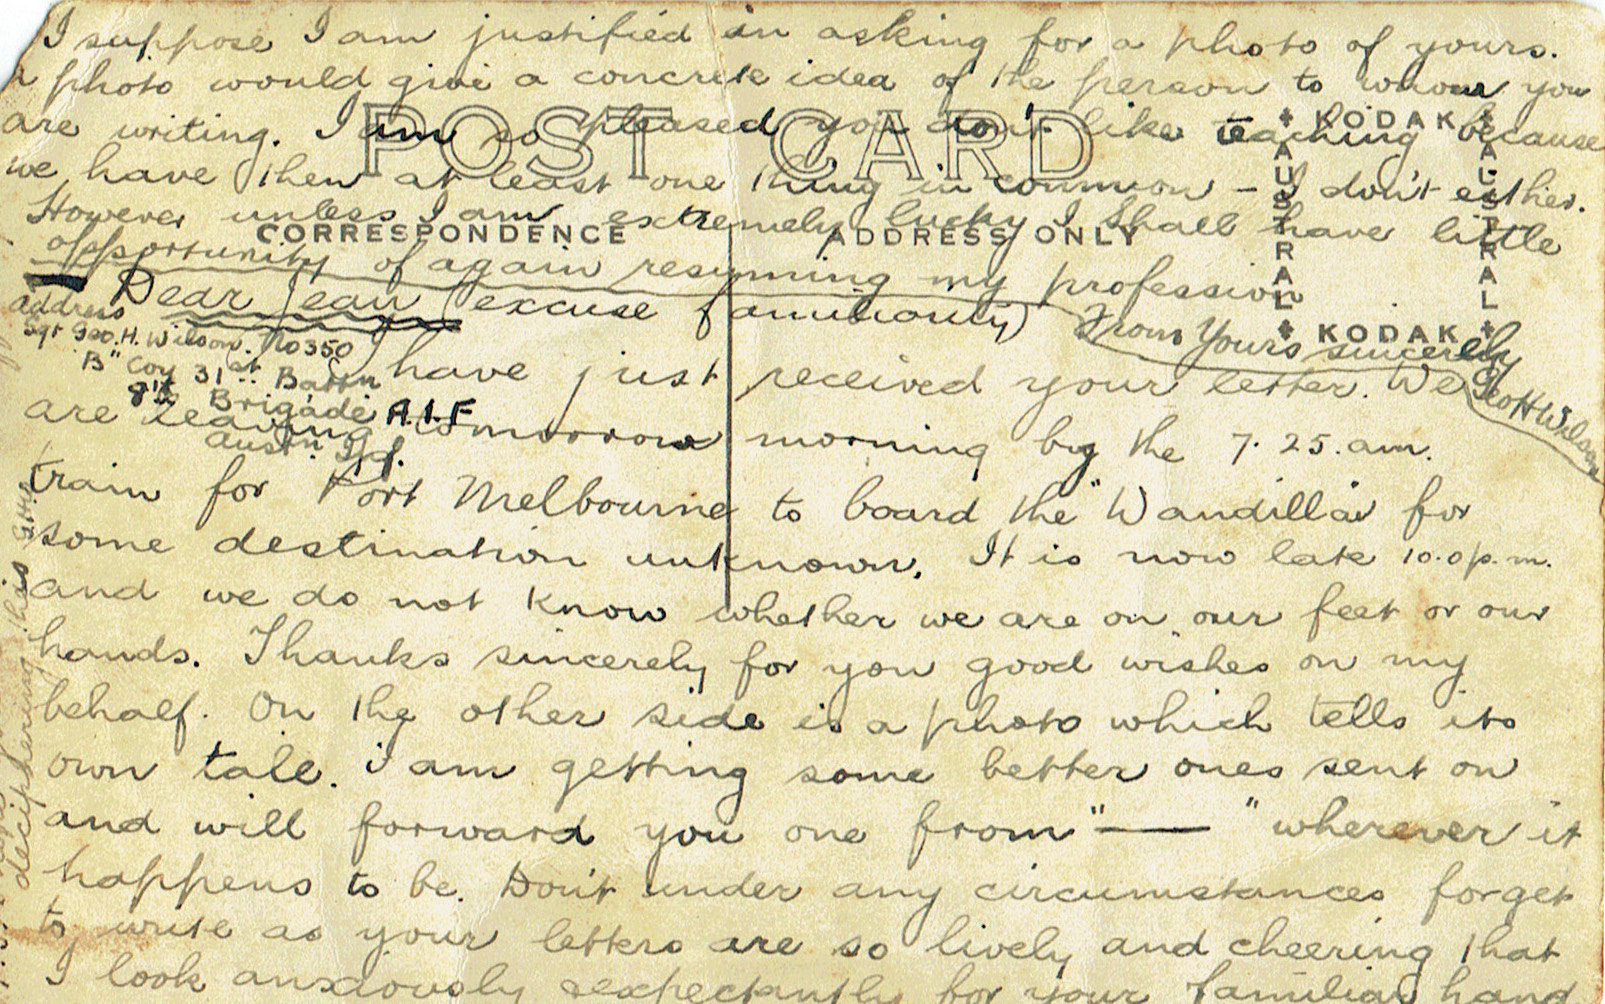 I suppose I am justified in asking for a photo of yours.
a photo would give a concrete idea of the person to whom you
are writing. I am so pleased you don't like teaching because
we have then at least one thing in common – I don't either.
However unless I am extremely lucky I shall have little
opportunity of again resuming my profession
From Yours sincerely
Geo H Wilson
POST CARD
CORRESPONDENCE
ADDRESS ONLY
KODAK
AUSTRAL
KODAK
AUSTRAL
Dear Jean (excuse familiarity)
address
Sgt Geo. H. Wilson. No 350
"B" Coy 31st Battn
8th Brigade A.I.F
I have just received your letter. We
are leaving tomorrow morning by the 7.25.am.
train for Port Melbourne to board the "Wandilla" for
some destination unknown. It is now late 10.0 p.m.
and we do not know whether we are on our feet or our
hands. Thanks sincerely for you good wishes on my
behalf. On the other side is a photo which tells its
own tale. I am getting some better ones sent on
and will forward you one from "——" wherever it
happens to be. Don't under any circumstances forget
to write as your letters are so lively and cheering that
I look anxiously expectantly for your familiar hand
deciphering this